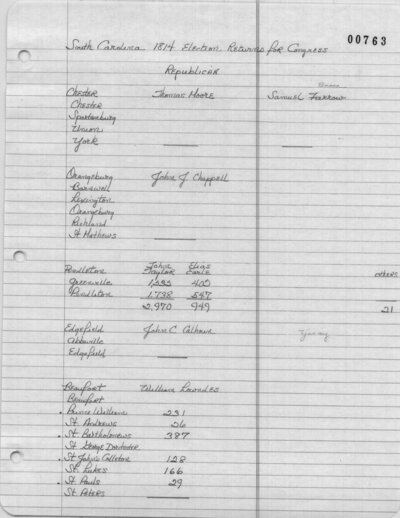 00763
South Carolina 1814 Election Returns for Congress
Republican
Chester Thomas Moore Samuel Farrow
Chester
Spartanburg
Union
York
Orangeburg John J. Chappell
Barnwell
Lexington
Orangeburg
Richland
St Mathews
Pendleton John Taylor Elias Earle others
Greenville 402
Pendleton 1,738 547
2,970 949 21
Edgefield John C Calhoun
Abbeville
Edgefield
Beaufort William Lowndes
Beaufort
Prince William 231
St. Andrews 26
St. Bartholomews 387
St George Dorchester
St John's Colleton 128
St. Lukes 166
St. Pauls 29
St Peters